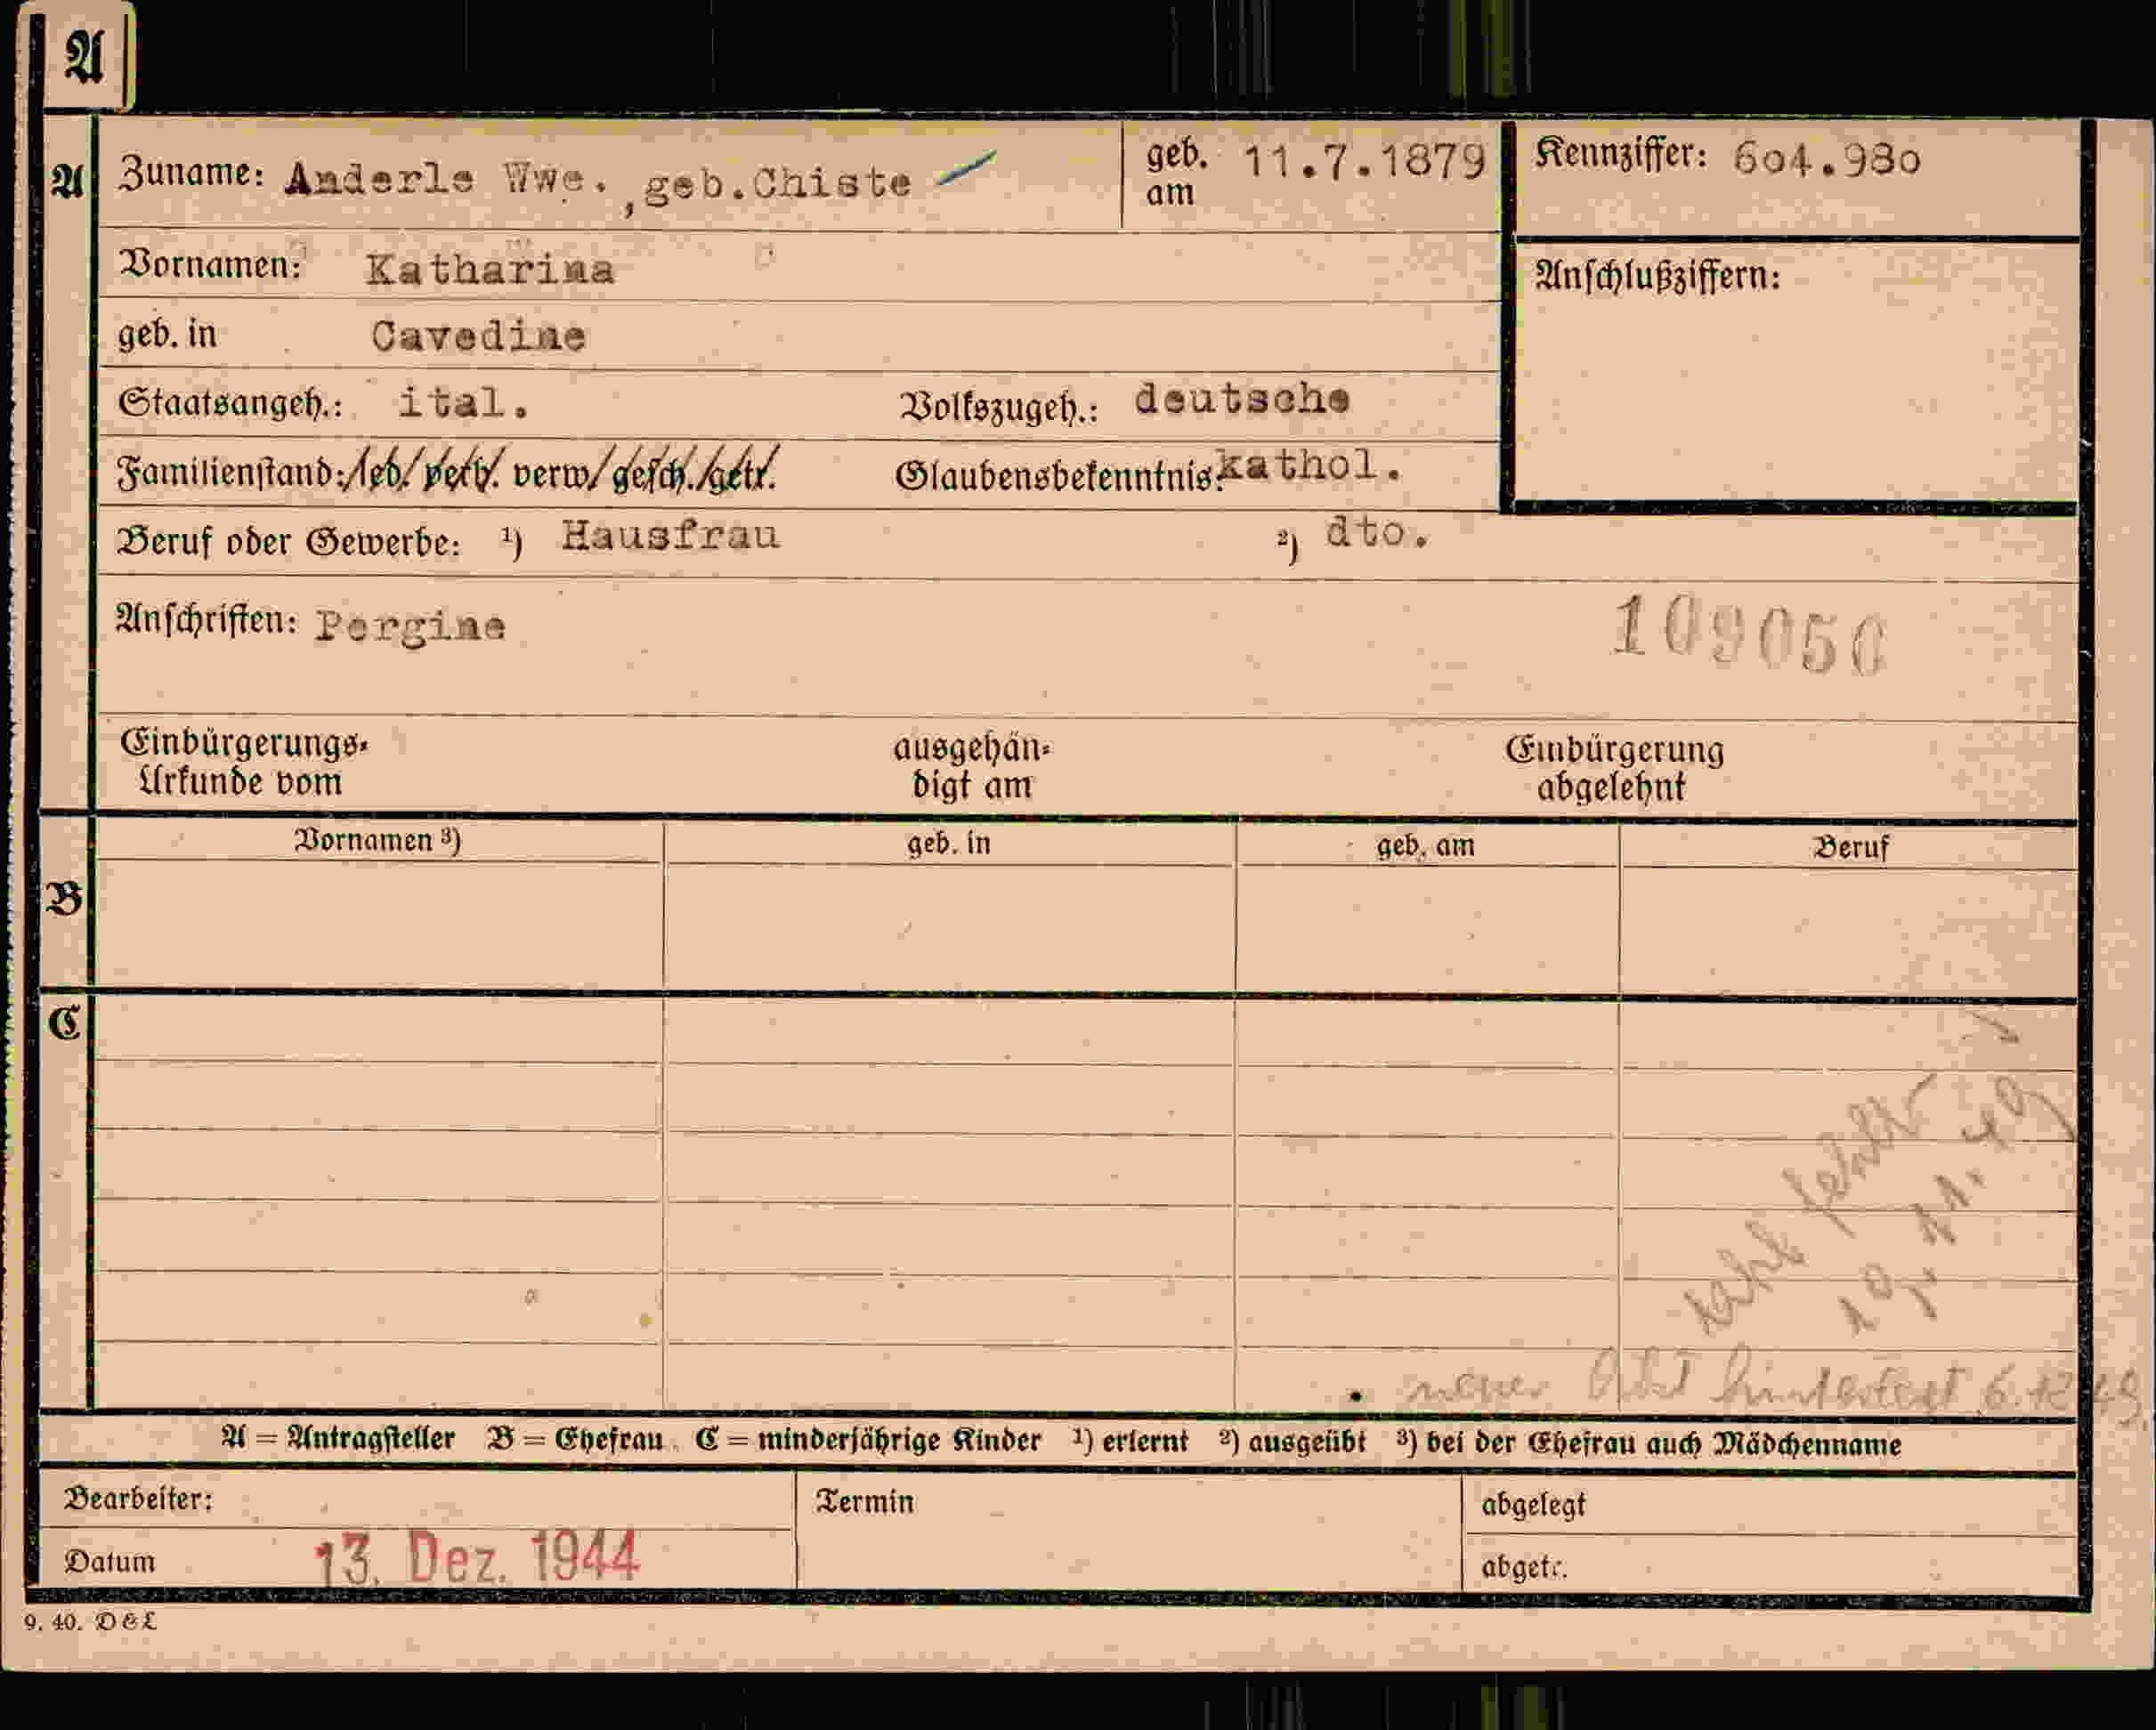 A
A
Zuname: Anderle Wwe. , geb.Chiste
geb. am 11.7.1879
Kennziffer: 604.980
Vornamen: Katharina
Anschlußziffern:
geb. in Cavedine
Staatsangeh.: ital. Volkszugeh.: deutsche
Familienstand: led. verh. verw. gesch. getr. Glaubensbekenntnis: kathol.
Beruf oder Gewerbe: ¹) Hausfrau ²) dto.
Anschriften: Pergine
109050
Einbürgerungs-
Urkunde vom
ausgehän-
digt am
Einbürgerung
abgelehnt
Vornamen ³) geb. in geb. am Beruf
B
C
fehlt
19. 11. 49
neuer hinterlegt 6.12.49
A = Antragsteller B = Ehefrau C = minderjährige Kinder ¹) erlernt ²) ausgeübt ³) bei der Ehefrau auch Mädchenname
Bearbeiter: Termin abgelegt
Datum 13. Dez. 1944 abgetr.
9. 40. D & L